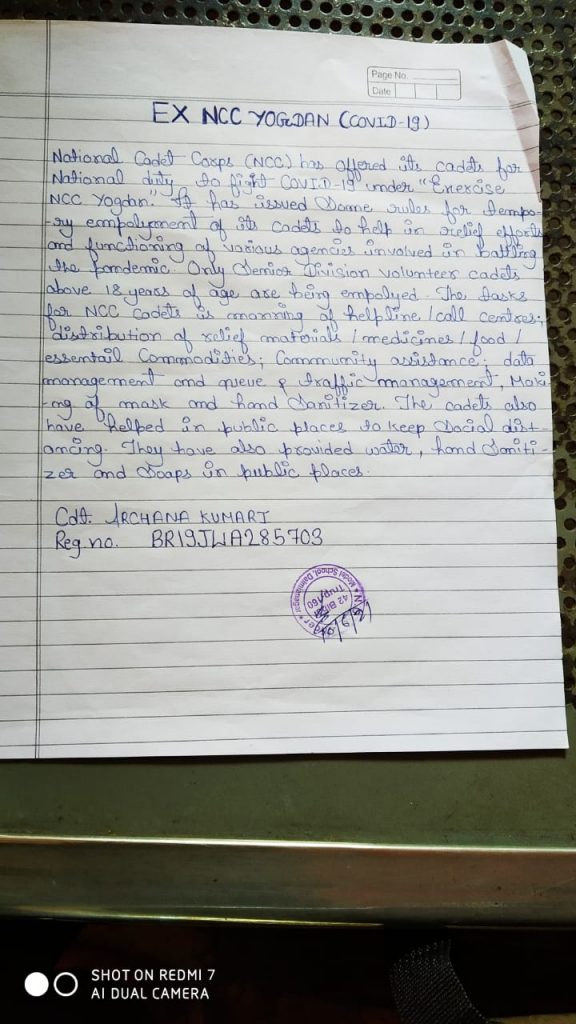 Page No.
Date
EX NCC YOGDAN (COVID-19)
National Cadet Corps (NCC) has offered its cadets for
National duty to fight COVID-19 under "Exercise
NCC Yogdan." It has issued Some rules for tempo-
-ry empolyment of its cadets to help in relief efforts
and functioning of various agencies involved in battling
the pandemic. Only Senior Division volunteer cadets
above 18 years of age are being empolyed. The tasks
for NCC Cadets is manning of helpline / call centres;
distribution of relief materials / medicines / food /
essentail Commodities; Community assistance; data
management and queue & traffic management, Maki-
-ng of mask and hand Sanitizer. The cadets also
have helped in public places to keep Social dist-
ancing. They have also provided water, hand Saniti-
zer and Soaps in public places.
Cdt. ARCHANA KUMARI
Reg. no. BR19JWA285703
Model School, Dalmianagar
42 BIHAR
Trup/160
SHOT ON REDMI 7
AI DUAL CAMERA